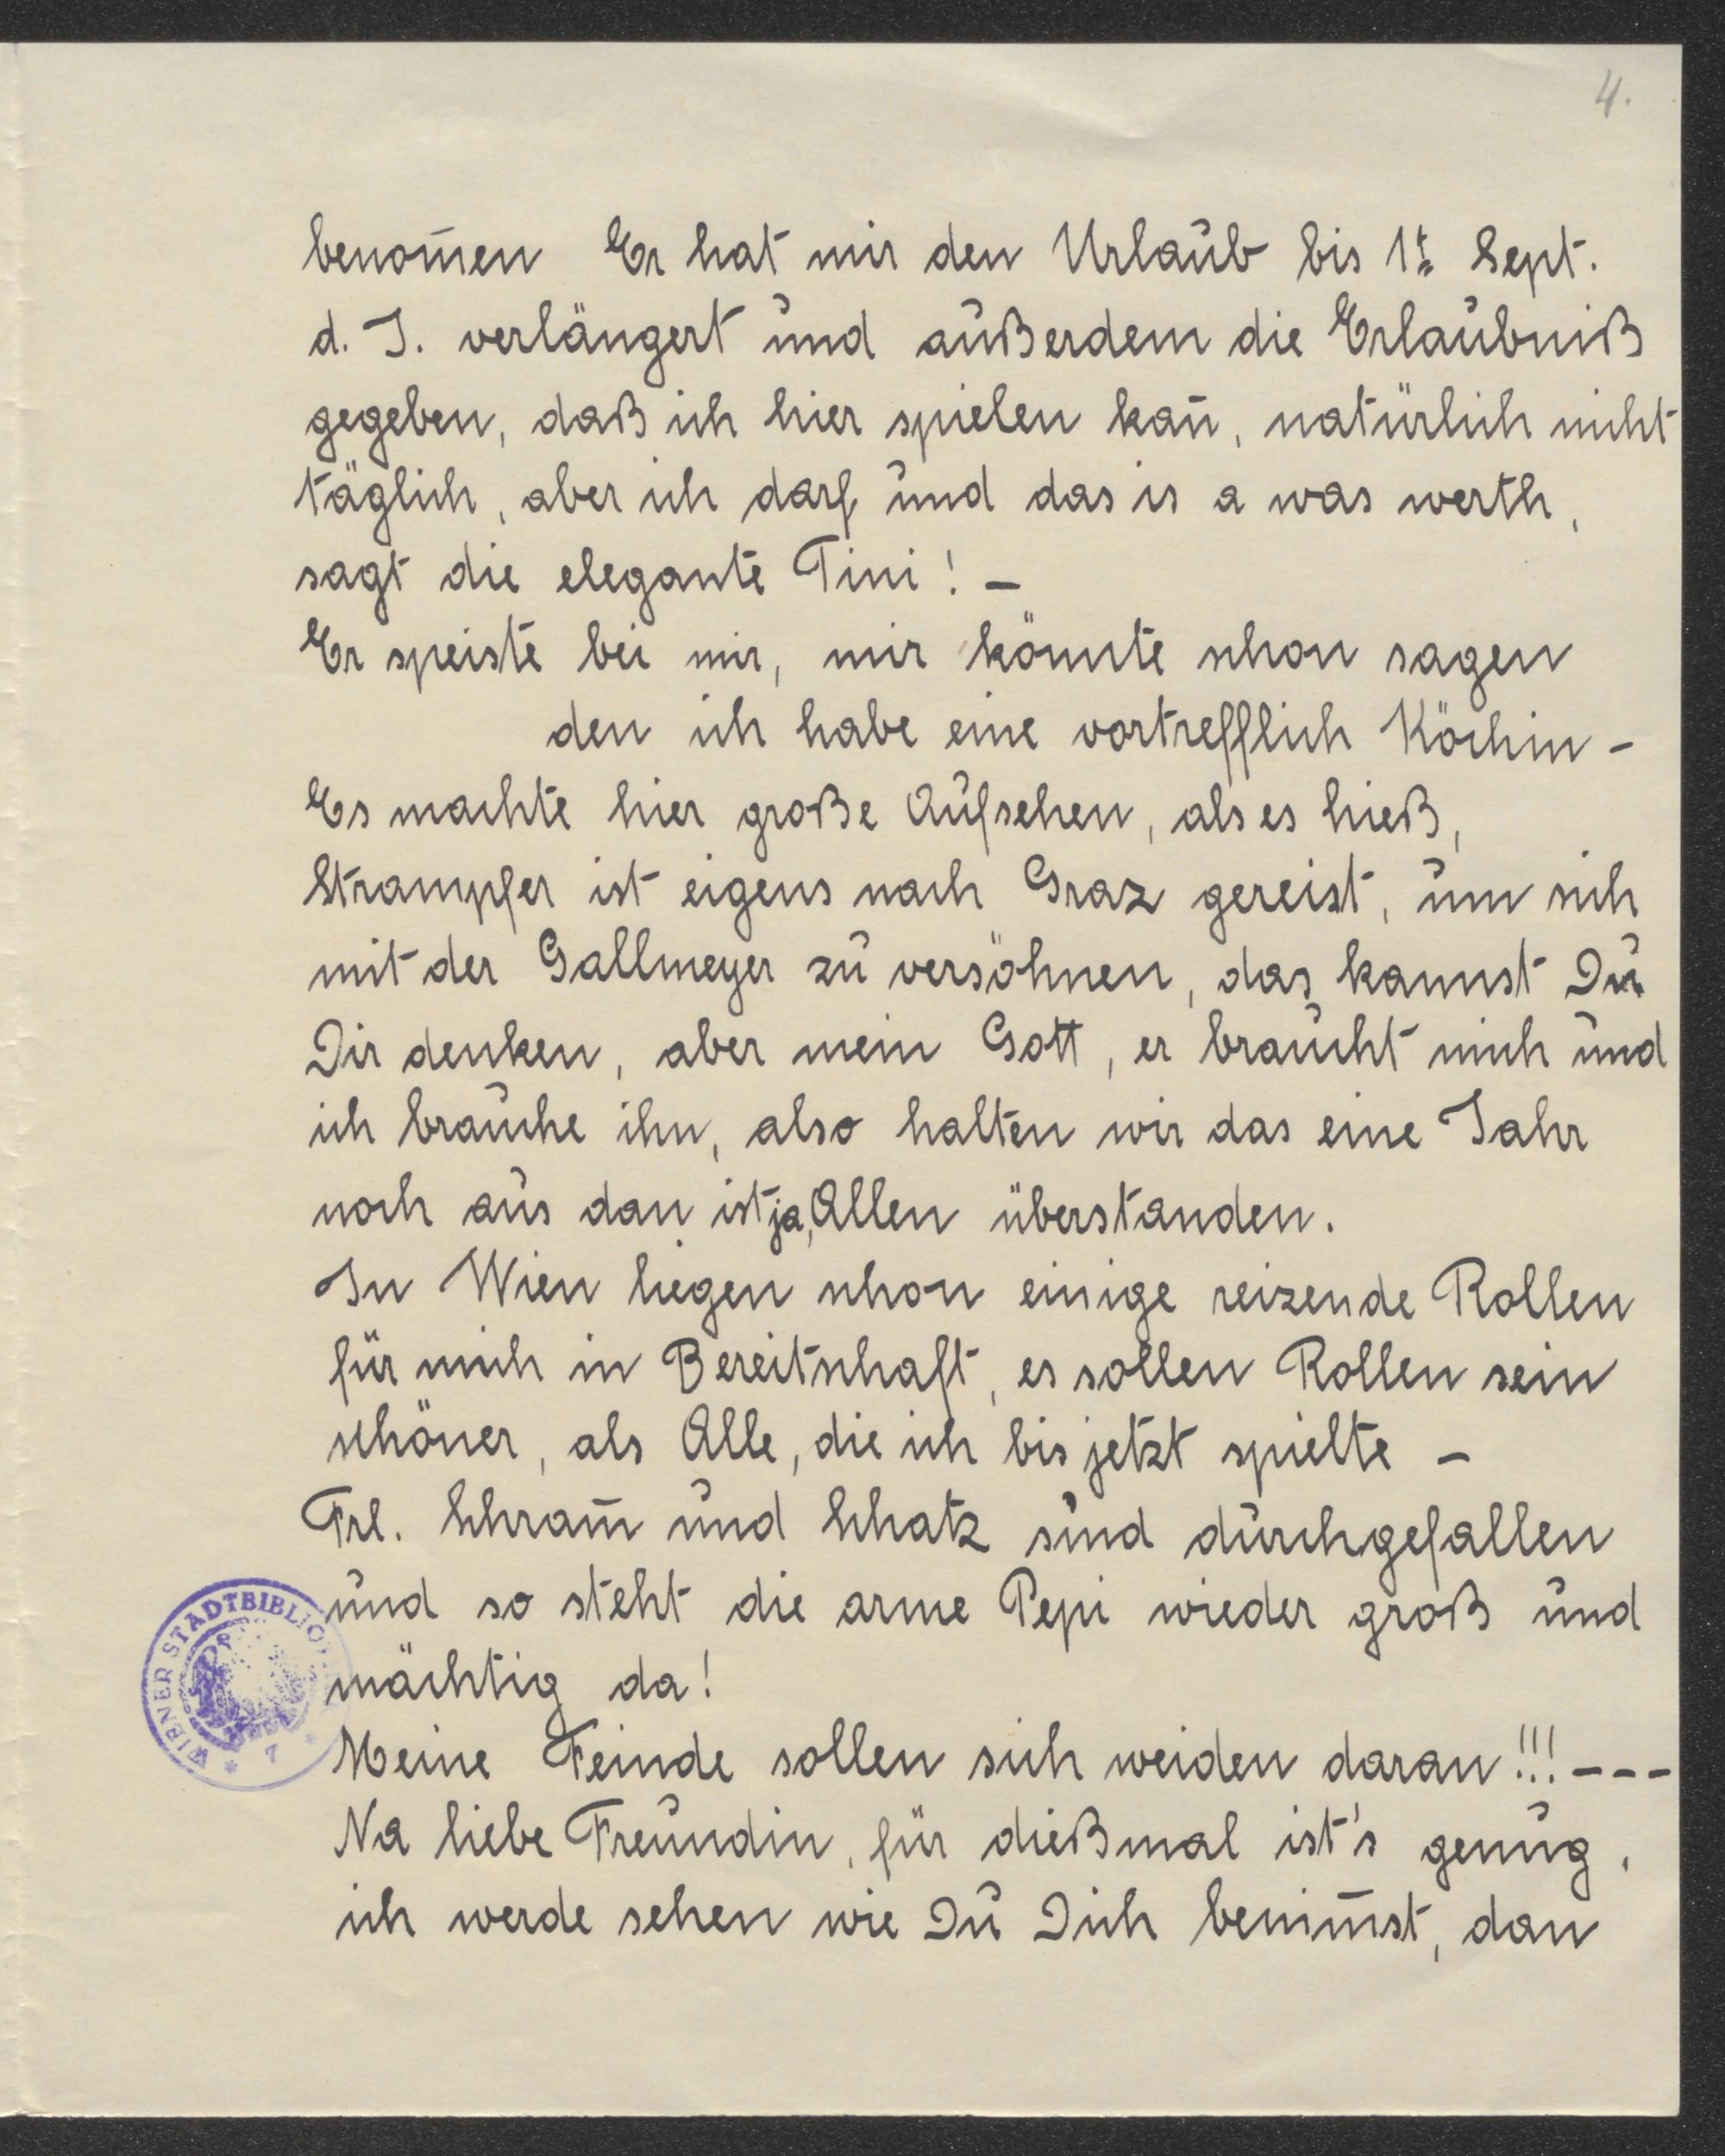 4.
benom̄en Er hat mir den Urlaub bis 1t. Sept.
d. J. verlängert und außerdem die Erlaubniß
gegeben, daß ich hier spielen kan̄, natürlich nicht
täglich, aber ich darf und das is a was werth,
sagt die elegante Tini! –
Er speiste bei mir, mir könnte schon sagen
den ich habe eine vortrefflich Köchin –
Es machte hier große Aufsehen, als es hieß,
Strampfer ist eigens nach Graz gereist, um sich
mit der Gallmeyer zu versöhnen, das kannst Du
Dir denken, aber mein Gott, er braucht mich und
ich brauche ihn, also halten wir das eine Jahr
noch aus dan ist ja, Allen überstanden.
In Wien liegen schon einige reizende Rollen
für mich in Bereitschaft, es sollen Rollen sein
schöner, als Alle, die ich bis jetzt spielte –
Frl. Schram̄ und Schatz sind durchgefallen
und so steht die arme Pepi wieder groß und
mächtig da!
Meine Feinde sollen sich weiden daran!!! – – –
Na liebe Freundin, für dießmal ist's genug,
ich werde sehen wie Du Dich benim̄st, dan
WIENER STADTBIBLIO
* 7 *